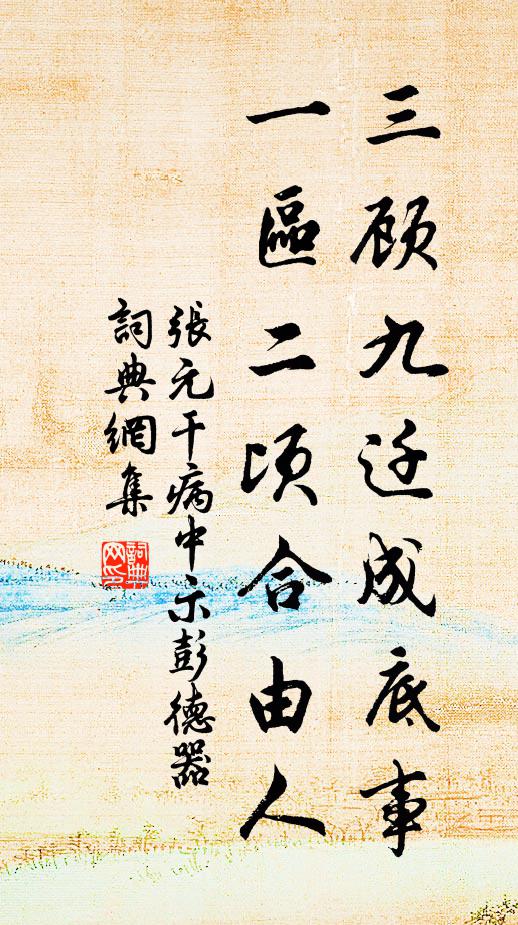 三顾九迁成底事
一區二顷合由人
張元干病中示彭德器
詞典網集
詞典
网印